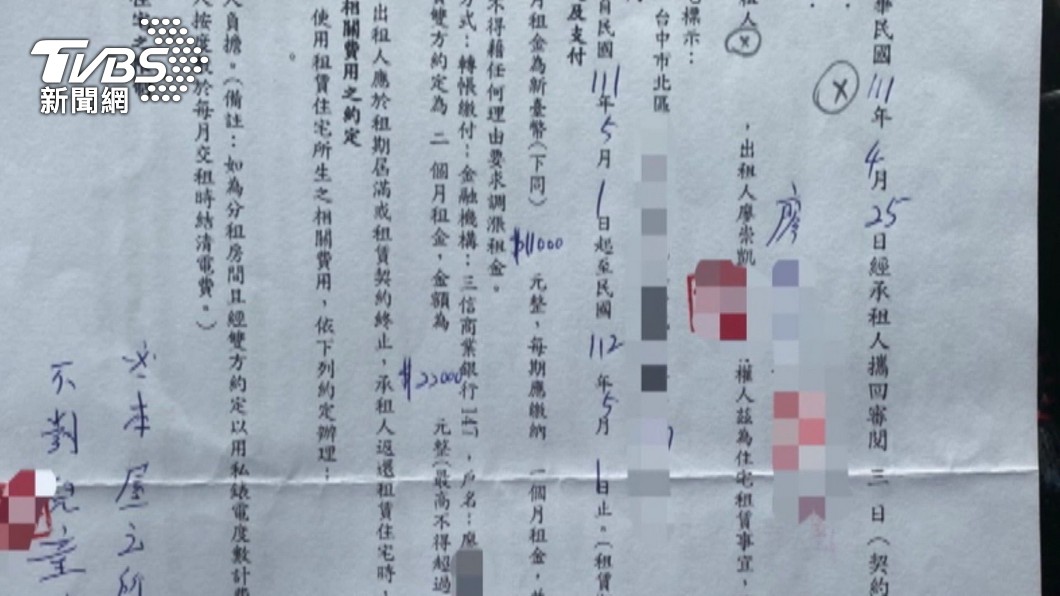 TVBS
新聞網
華民國111年4月25日經承租人攜回審閱三日(契約
廖
租人
,出租人廖崇凱
權人茲為住宅租賃事宜,
標示:
台中市北區
自民國111年5月1日起至民國112年5月1日止。(租賃
及支付
月租金為新臺幣(下同)$11000元整,每期應繳納一個月租金,並
不得藉任何理由要求調漲租金。
方式:轉帳繳付:金融機構:三信商業銀行147,戶名:廖
雙方約定為二個月租金,金額為$22000元整(最高不得超過
出租人應於租期屆滿或租賃契約終止,承租人返還租賃住宅時,
相關費用之約定
使用租賃住宅所生之相關費用,依下列約定辦理:
人負擔。(備註:如為分租房間且經雙方約定以用私錶電度數計費
人按度 於每月交租時結清電費。)
本屋之所
不對